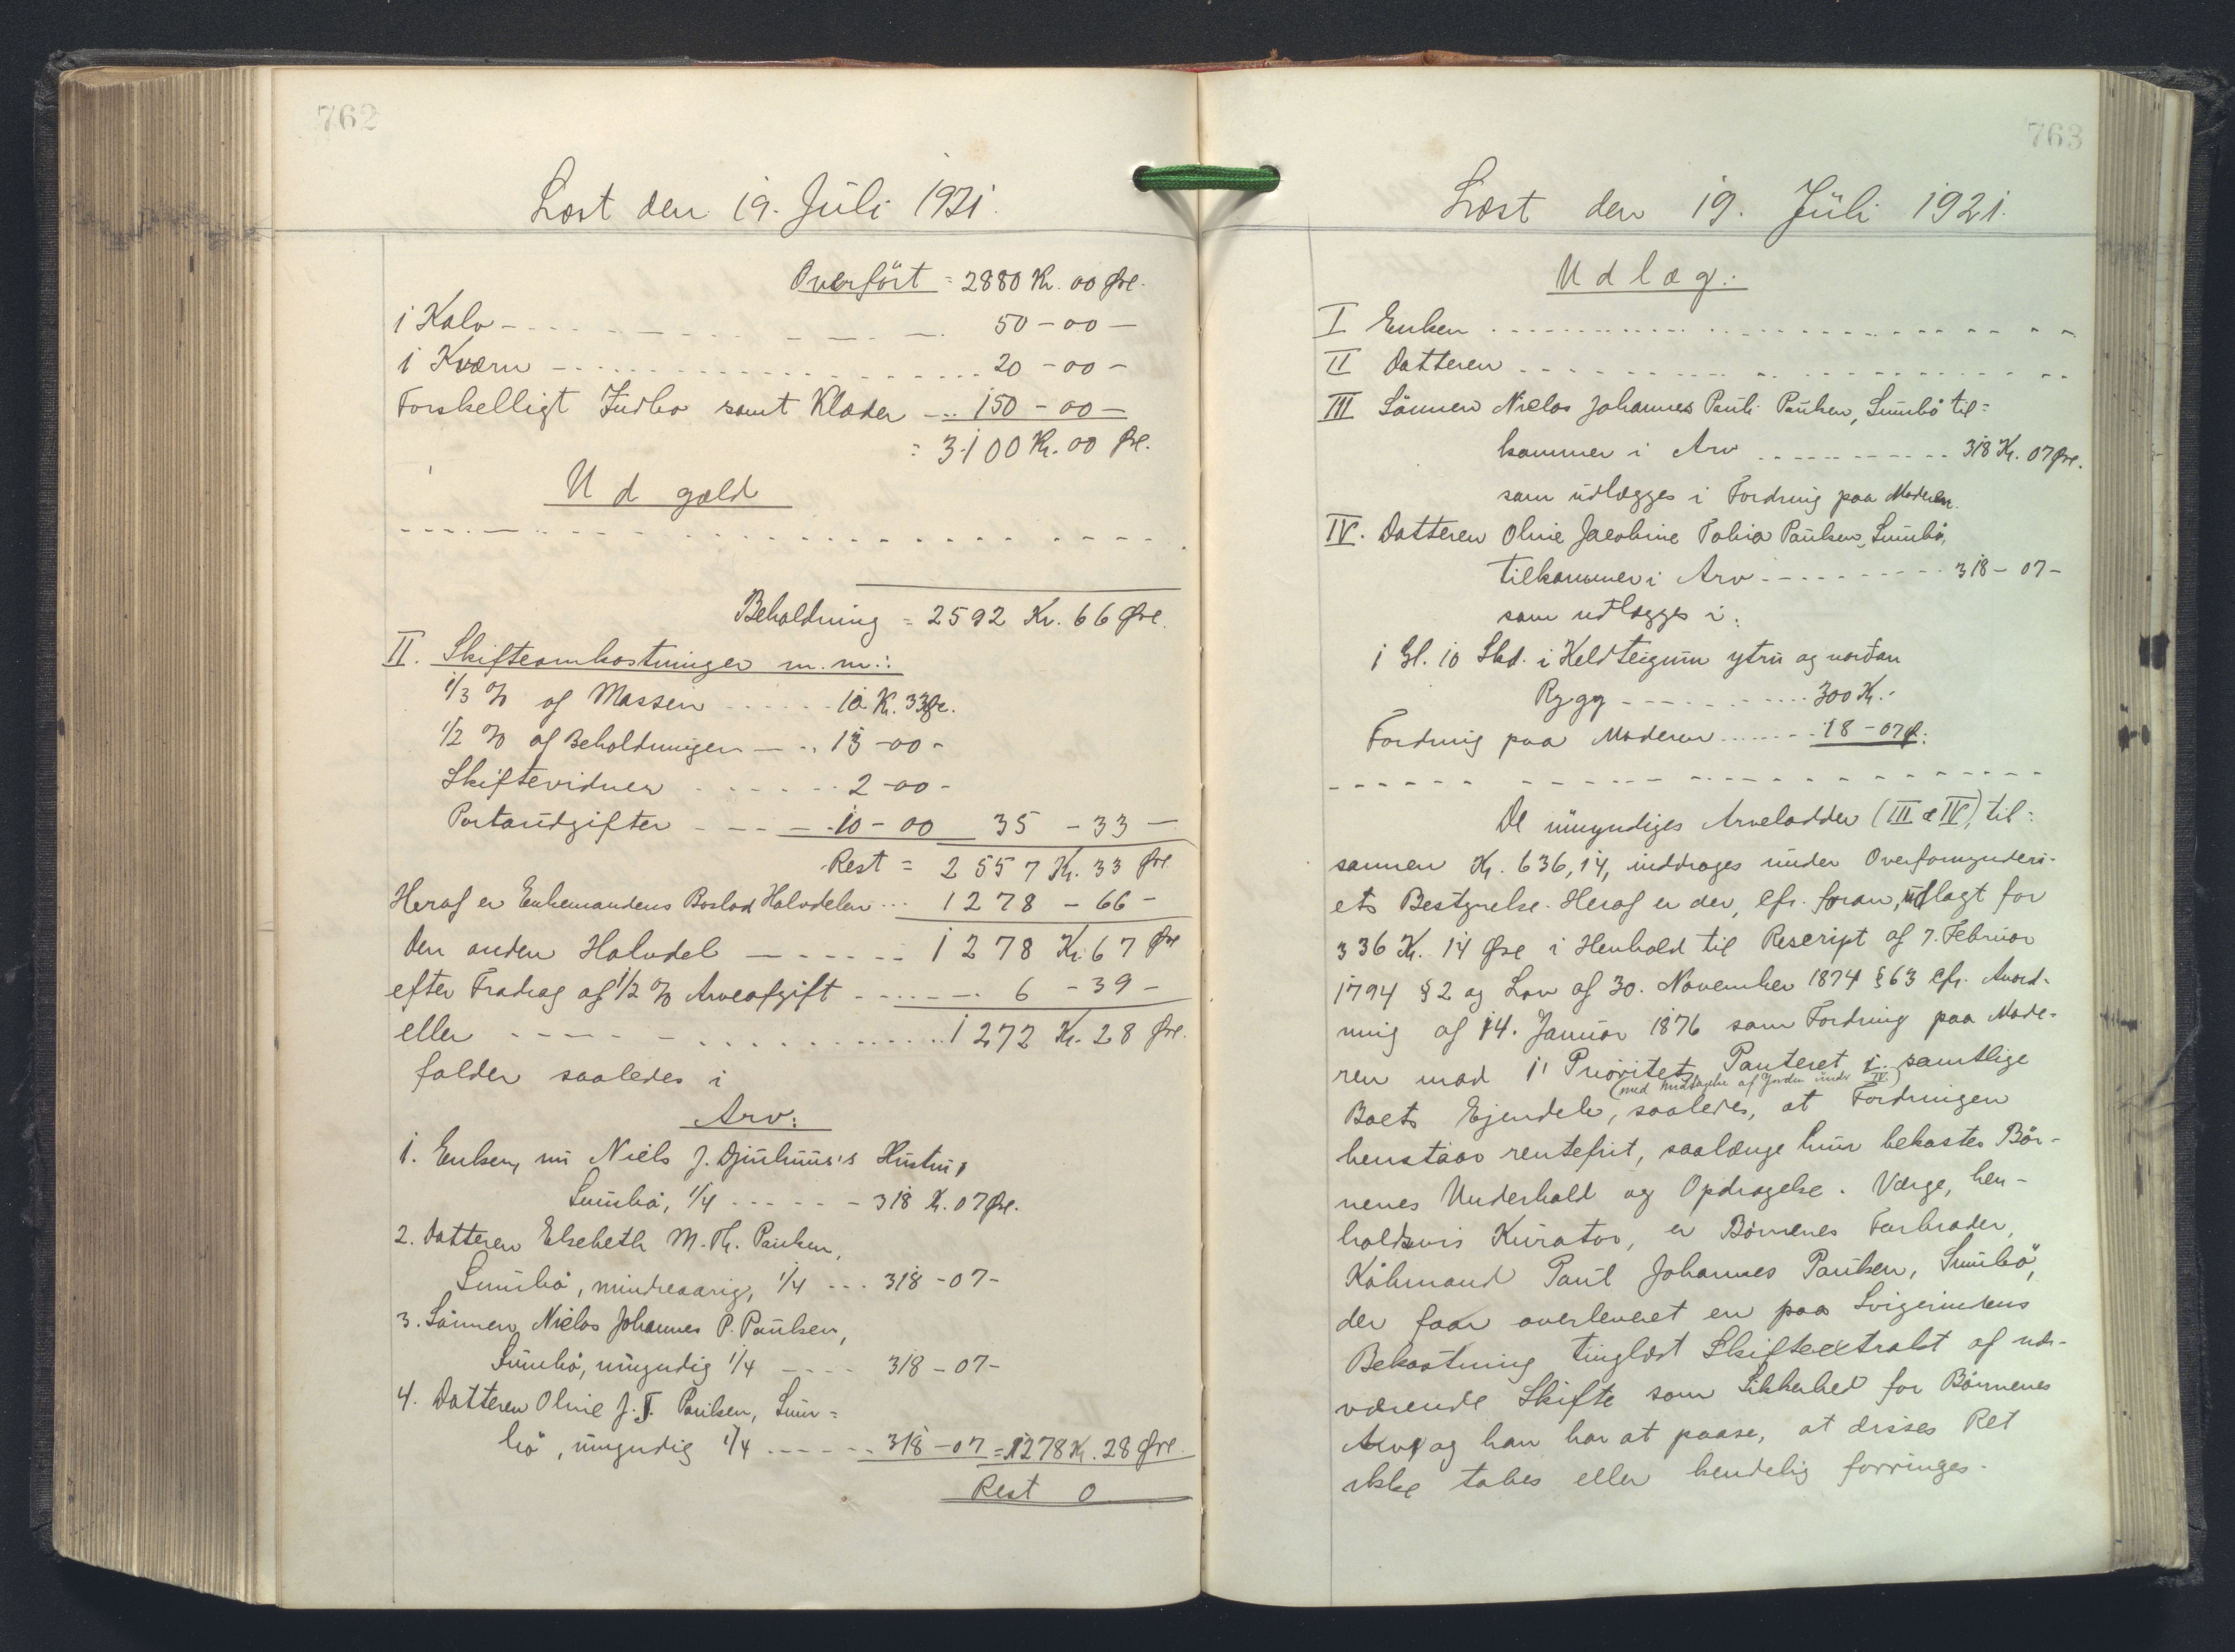 762
Læst den 19. Juli 1921.
Overført = 2880 Kr. 00 Øre.
1 Kalv - - - - 50 - 00 -
1 Kværn - - - - 20 - 00 -
Forskelligt Indbo samt Klæder - - 150 - 00 -
= 3100 Kr. 00 Øre.
Udgæld
Beholdning = 2592 Kr. 66 Øre.
II. Skifteomkostninger m.m.:
1/3 % af Massen - - - 10 K. 33 Øre.
1/2 % af Beholdningen - - 13 - 00 -
Skiftevidner - - - 2 - 00 -
Portoudgifter - - - 10 - 00 35 - 33 -
Rest = 2557 Kr. 33 Øre
Heraf er Enkemandens Boslod Halvdelen ... 1278 - 66 -
Den anden Halvdel - - - 1278 Kr. 67 Øre
efter Fradrag af 1/2 % Arveafgift - - - 6 - 39 -
eller - - - 1272 Kr. 28 Øre.
falder saaledes i
Arv:
1. Enken, nu Niels J. Djurhuus's Hustru,
Sumbö, 1/4 - - - 318 K. 07 Øre.
2. Datteren Elsebeth M. Th. Paulsen,
Sumbö, mindreaarig, 1/4 - - - 318 - 07 -
3. Sönnen Niclas Johannes P. Poulsen,
Sumbö, umyndig 1/4 - - - 318 - 07 -
4. Datteren Oline J. T. Poulsen, Sum=
bö, umyndig 1/4 - - - 318 - 07 = 1278 K. 28 Øre.
Rest 0
763
Læst den 19. Juli 1921.
Udlæg:
I Enken - - -
II Datteren - - -
III Sönnen Niclas Johannes Pauli Paulsen, Sumbö til=
kommer i Arv - - - 318 Kr. 07 Øre.
som udlægges i Fordring paa Moderen.
IV. Datteren Oline Jacobine Tabia Paulsen, Sumbö,
tilkommer i Arv - - - 318 - 07 -
som udlægges i:
1 Gl. 10 Skd. i Heldteigum ytru og nordan
Rygg - - - 300 K. -
Fordring paa Moderen - - - 18 - 07 Ø.
De umyndiges Arvelodder (III & IV), til=
sammen Kr. 636,14, inddrages under Overformynderi-
ets Bestyrelse. Heraf er der, cfr. foran, udlagt for
336 Kr. 14 Øre i Henhold til Rescript af 7. Februar
1794 § 2 og Lov af 30. November 1874 § 63 cfr. Anord-
ning af 14. Januar 1876 som Fordring paa Mode-
ren mod 1' Prioritets Panteret i samtlige
(med Undtagelse af Jorden under IV.)
Boets Ejendele, saaledes, at Fordringen
henstaar rentefrit, saalænge hun bekoster Bör-
nenes Underhold og Opdragelse. Værge, hen-
holdsvis Kurator, er Börnenes Farbroder,
Köbmand Paul Johannes Paulsen, Sumbö,
der faar overleveret en paa Svigerindens
Bekostning tinglæst Skifteextrakt af nær-
værende Skifte som Sikkerhed for Börnenes
Arv, og han har at paase, at disses Ret
ikke tabes eller kendelig forringes.